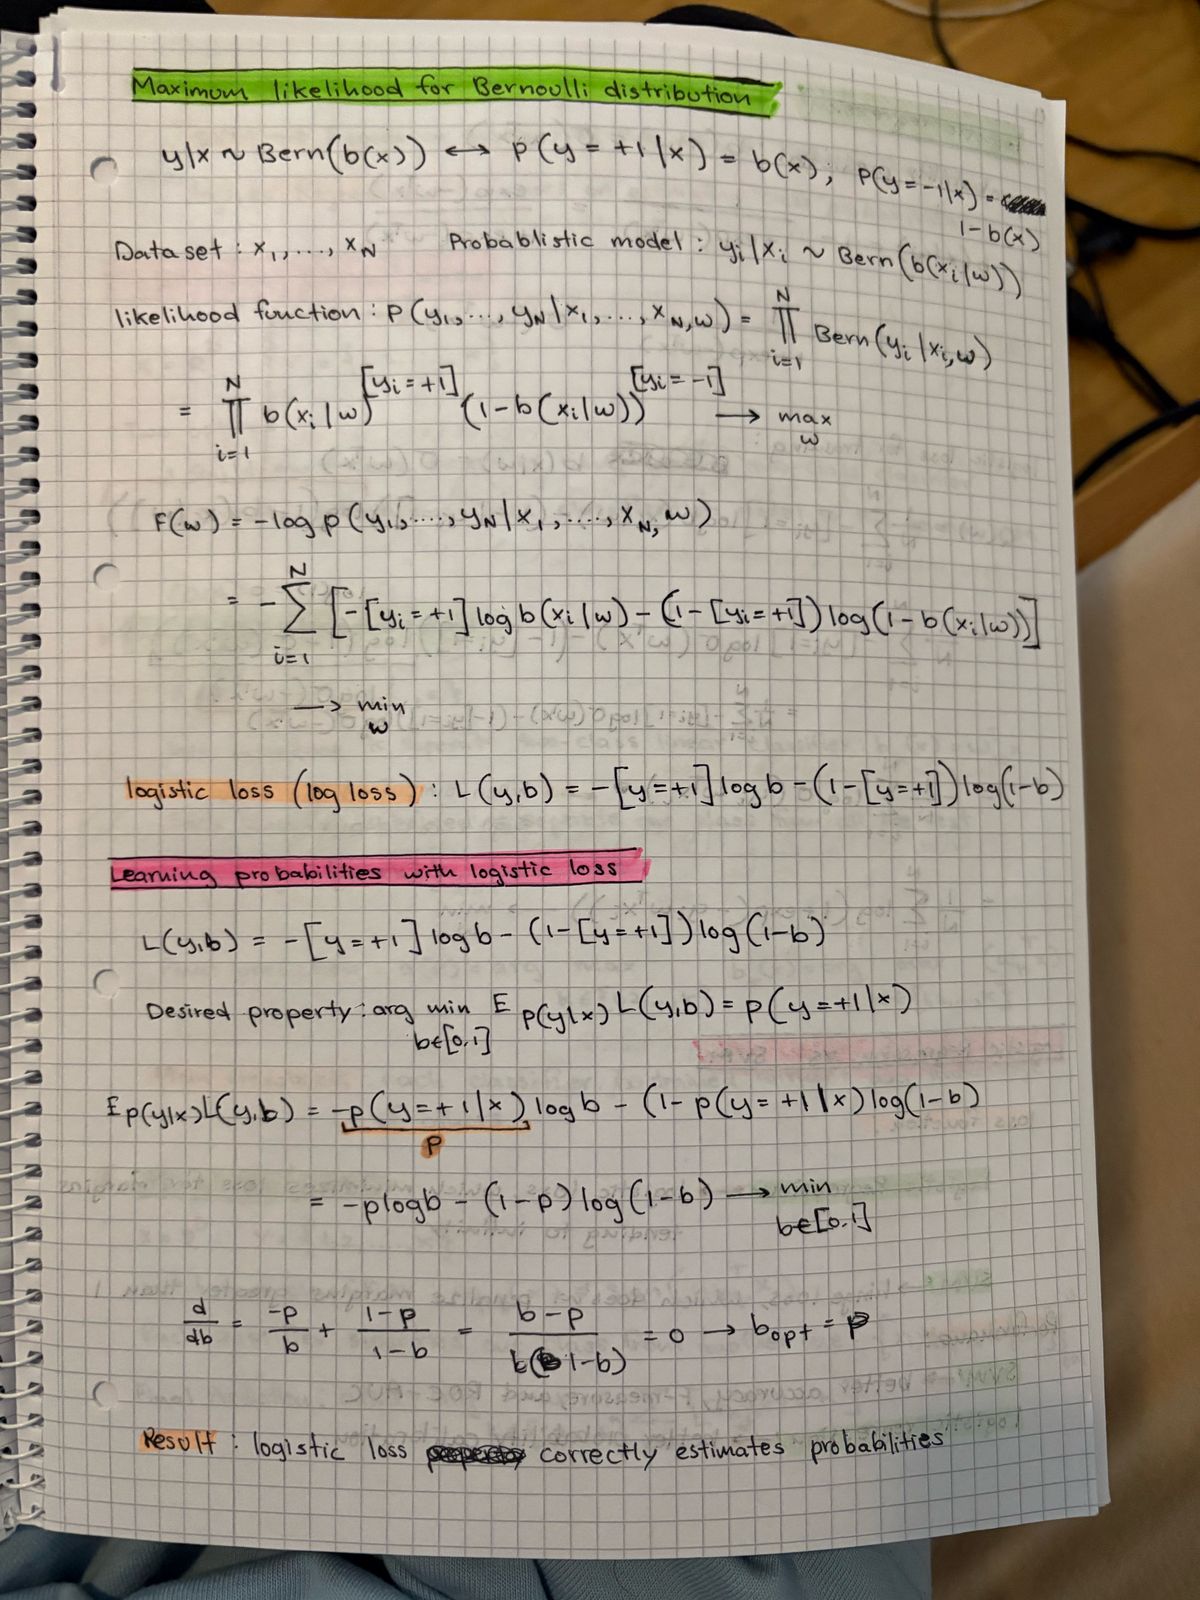 Maximum likelihood for Bernoulli distribution
y|x ~ Bern(b(x)) ↔ p(y = +1|x) = b(x); p(y = -1|x) =
1-b(x)
Data set : x₁,..., x_N Probablistic model : yᵢ|xᵢ ~ Bern(b(xᵢ|w))
likelihood function : p(y₁,..., y_N|x₁,..., x_N,w) = ∏_{i=1}^{N} Bern(yᵢ|xᵢ,w)
= ∏_{i=1}^{N} b(xᵢ|w)^{[yᵢ=+1]} (1-b(xᵢ|w))^{[yᵢ=-1]} → max_w
F(w) = -log p(y₁,..., y_N|x₁,..., x_N, w)
= -∑_{i=1}^{N} [-[yᵢ=+1] log b(xᵢ|w) - (1-[yᵢ=+1]) log(1-b(xᵢ|w))]
→ min_w
logistic loss (log loss) : L(y,b) = -[y=+1] log b - (1-[y=+1]) log(1-b)
Learning probabilities with logistic loss
L(y,b) = -[y=+1] log b - (1-[y=+1]) log(1-b)
Desired property : arg min_{b∈[0,1]} E_{p(y|x)} L(y,b) = p(y=+1|x)
E_{p(y|x)} L(y,b) = -p(y=+1|x) log b - (1-p(y=+1|x) log(1-b)
p
= -p log b - (1-p) log(1-b) → min_{b∈[0,1]}
d/db = -p/b + 1-p/1-b = b-p/b(1-b) = 0 → b_opt = p
Result : logistic loss correctly estimates probabilities